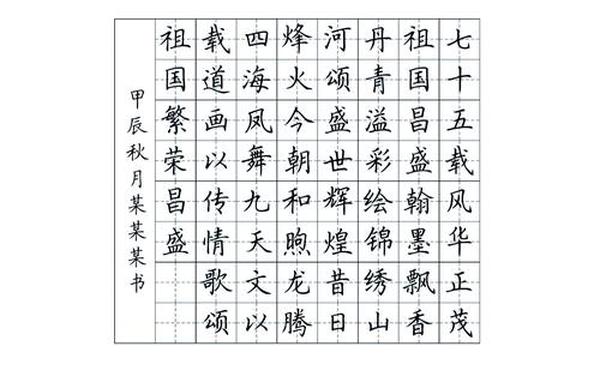 七十五载风华正茂
祖国昌盛翰墨飘香
丹青溢彩绘锦绣山
河颂盛世辉煌昔日
烽火今朝和煦龙腾
四海凤舞九天文以
载道画以传情歌颂
祖国繁荣昌盛
甲辰秋月某某某书